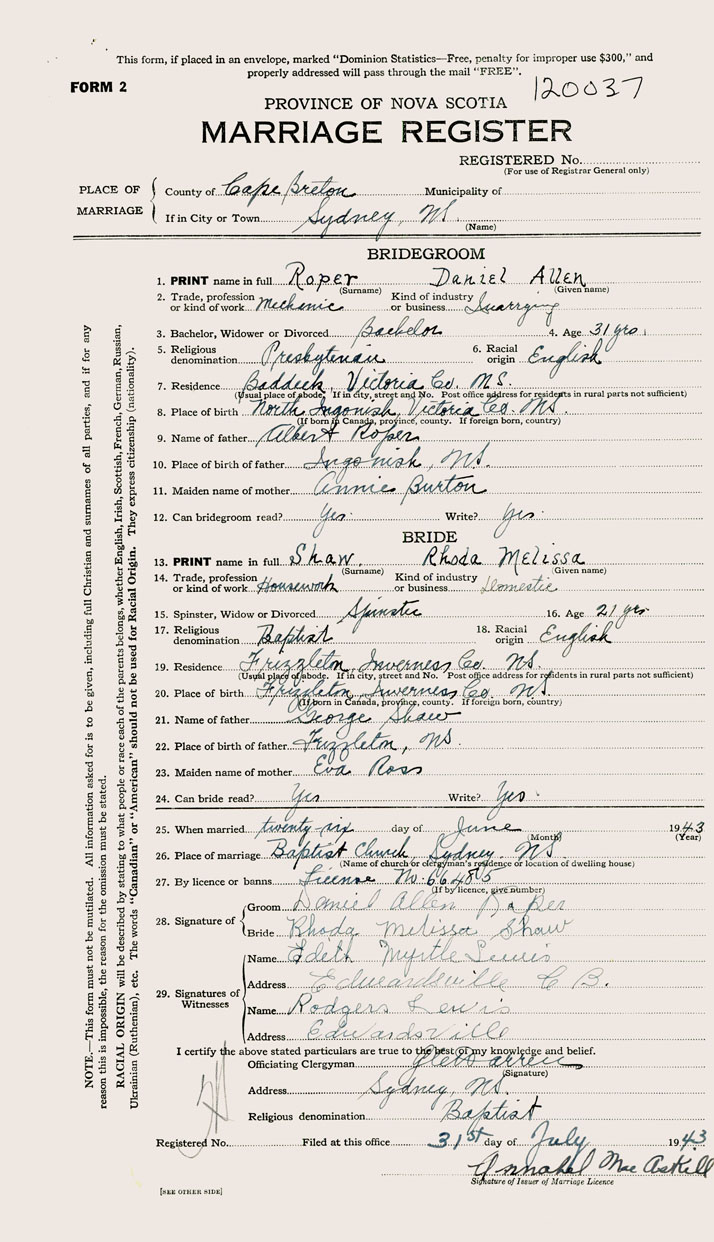 This form, if placed in an envelope, marked "Dominion Statistics—Free, penalty for improper use $300," and
properly addressed will pass through the mail "FREE".
FORM 2
120037
PROVINCE OF NOVA SCOTIA
MARRIAGE REGISTER
REGISTERED No.
(For use of Registrar General only)
PLACE OF MARRIAGE
County of Cape Breton Municipality of
If in City or Town Sydney, NS.
(Name)
BRIDEGROOM
1. PRINT name in full Roper Daniel Allen
(Surname) (Given name)
2. Trade, profession or kind of work Mechanic Kind of industry or business Quarrying
3. Bachelor, Widower or Divorced Bachelor 4. Age 31 yrs.
5. Religious denomination Presbyterian 6. Racial origin English
7. Residence Baddeck, Victoria Co. NS.
(Usual place of abode. If in city, street and No. Post office address for residents in rural parts not sufficient)
8. Place of birth North Ingonish, Victoria Co. NS.
(If born in Canada, province, county. If foreign born, country)
9. Name of father Albert Roper
10. Place of birth of father Ingonish, NS.
11. Maiden name of mother Annie Burton
12. Can bridegroom read? Yes. Write? Yes.
BRIDE
13. PRINT name in full Shaw. Rhoda Melissa
(Surname) (Given name)
14. Trade, profession or kind of work Housework Kind of industry or business Domestic
15. Spinster, Widow or Divorced Spinster 16. Age 21 yrs.
17. Religious denomination Baptist 18. Racial origin English
19. Residence Frizzleton, Inverness Co. NS.
(Usual place of abode. If in city, street and No. Post office address for residents in rural parts not sufficient)
20. Place of birth Frizzleton, Inverness Co. NS.
(If born in Canada, province, county. If foreign born, country)
21. Name of father George Shaw
22. Place of birth of father Frizzleton, NS.
23. Maiden name of mother Eva Ross
24. Can bride read? Yes Write? Yes.
25. When married twenty-six day of June 1943
(Month) (Year)
26. Place of marriage Baptist Church, Sydney. NS
(Name of church or clergyman's residence or location of dwelling house)
27. By licence or banns License No. 66485
(If by licence, give number)
28. Signature of
Groom Daniel Allen Roper
Bride Rhoda Melissa Shaw
29. Signatures of Witnesses
Name Edith Myrtle Lewis
Address Edwardsville C B.
Name Rodgers Lewis
Address Edwardsville
I certify the above stated particulars are true to the best of my knowledge and belief.
Officiating Clergyman Warren
(Signature)
Address Sydney, NS.
Religious denomination Baptist
Registered No. Filed at this office 31st day of July 1943
Annabel MacAskill
Signature of Issuer of Marriage Licence
[SEE OTHER SIDE]
NOTE.—This form must not be mutilated. All information asked for is to be given, including full Christian and surnames of all parties, and if for any
reason this is impossible, the reason for the omission must be stated.
RACIAL ORIGIN will be described by stating to what people or race each of the parents belongs, whether English, Irish, Scottish, French, German, Russian,
Ukrainian (Ruthenian), etc. The words "Canadian" or "American" should not be used for Racial Origin. They express citizenship (nationality).